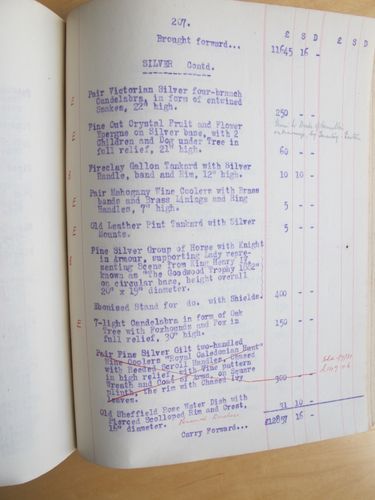 207.
£ S D £ S D
Brought forward... 11645 16 -
SILVER Contd.
E Pair Victorian Silver four-branch
Candelabra, in form of entwined
Snakes, 22" high. 250 - -
E Fine Cut Crystal Fruit and Flower
Epergne on Silver base, with 2
Children and Dog under Tree in
full relief, 21" high. 60 - -
Fireclay Gallon Tankard with Silver
Handle, band and Rim, 12" high. 10 10 -
E Pair Mahogany Wine Coolers with Brass
bands and Brass Linings and Ring
Handles, 7" high. 5 - -
Old Leather Pint Tankard with Silver
Mounts. 5 - -
Fine Silver Group of Horse with Knight
in Armour, supporting Lady repre-
senting Scene from King Henry IV,
known as "The Goodwood Trophy
on circular base, height overall
20" x 15" diameter.
Ebonised Stand for do. with Shields. 400 - -
E 7-light Candelabra in form of Oak
Tree with Foxhounds and Fox in
full relief, 30" high. 150 - -
Pair Fine Silver Gilt two-handled
Wine Coolers "Royal Caledonian Hunt"
with Reeded Scroll Handles, Chased
in high relief, with Vine pattern
Wreath and Coat of Arms, on Square
Plinth, the rim with Chased Ivy
leaves. 300 - -
Old Sheffield Rose Water Dish with
Pierced Scolloped Rim and Crest,
16" diameter. 31 10 -
Carry Forward... £12857 16 -